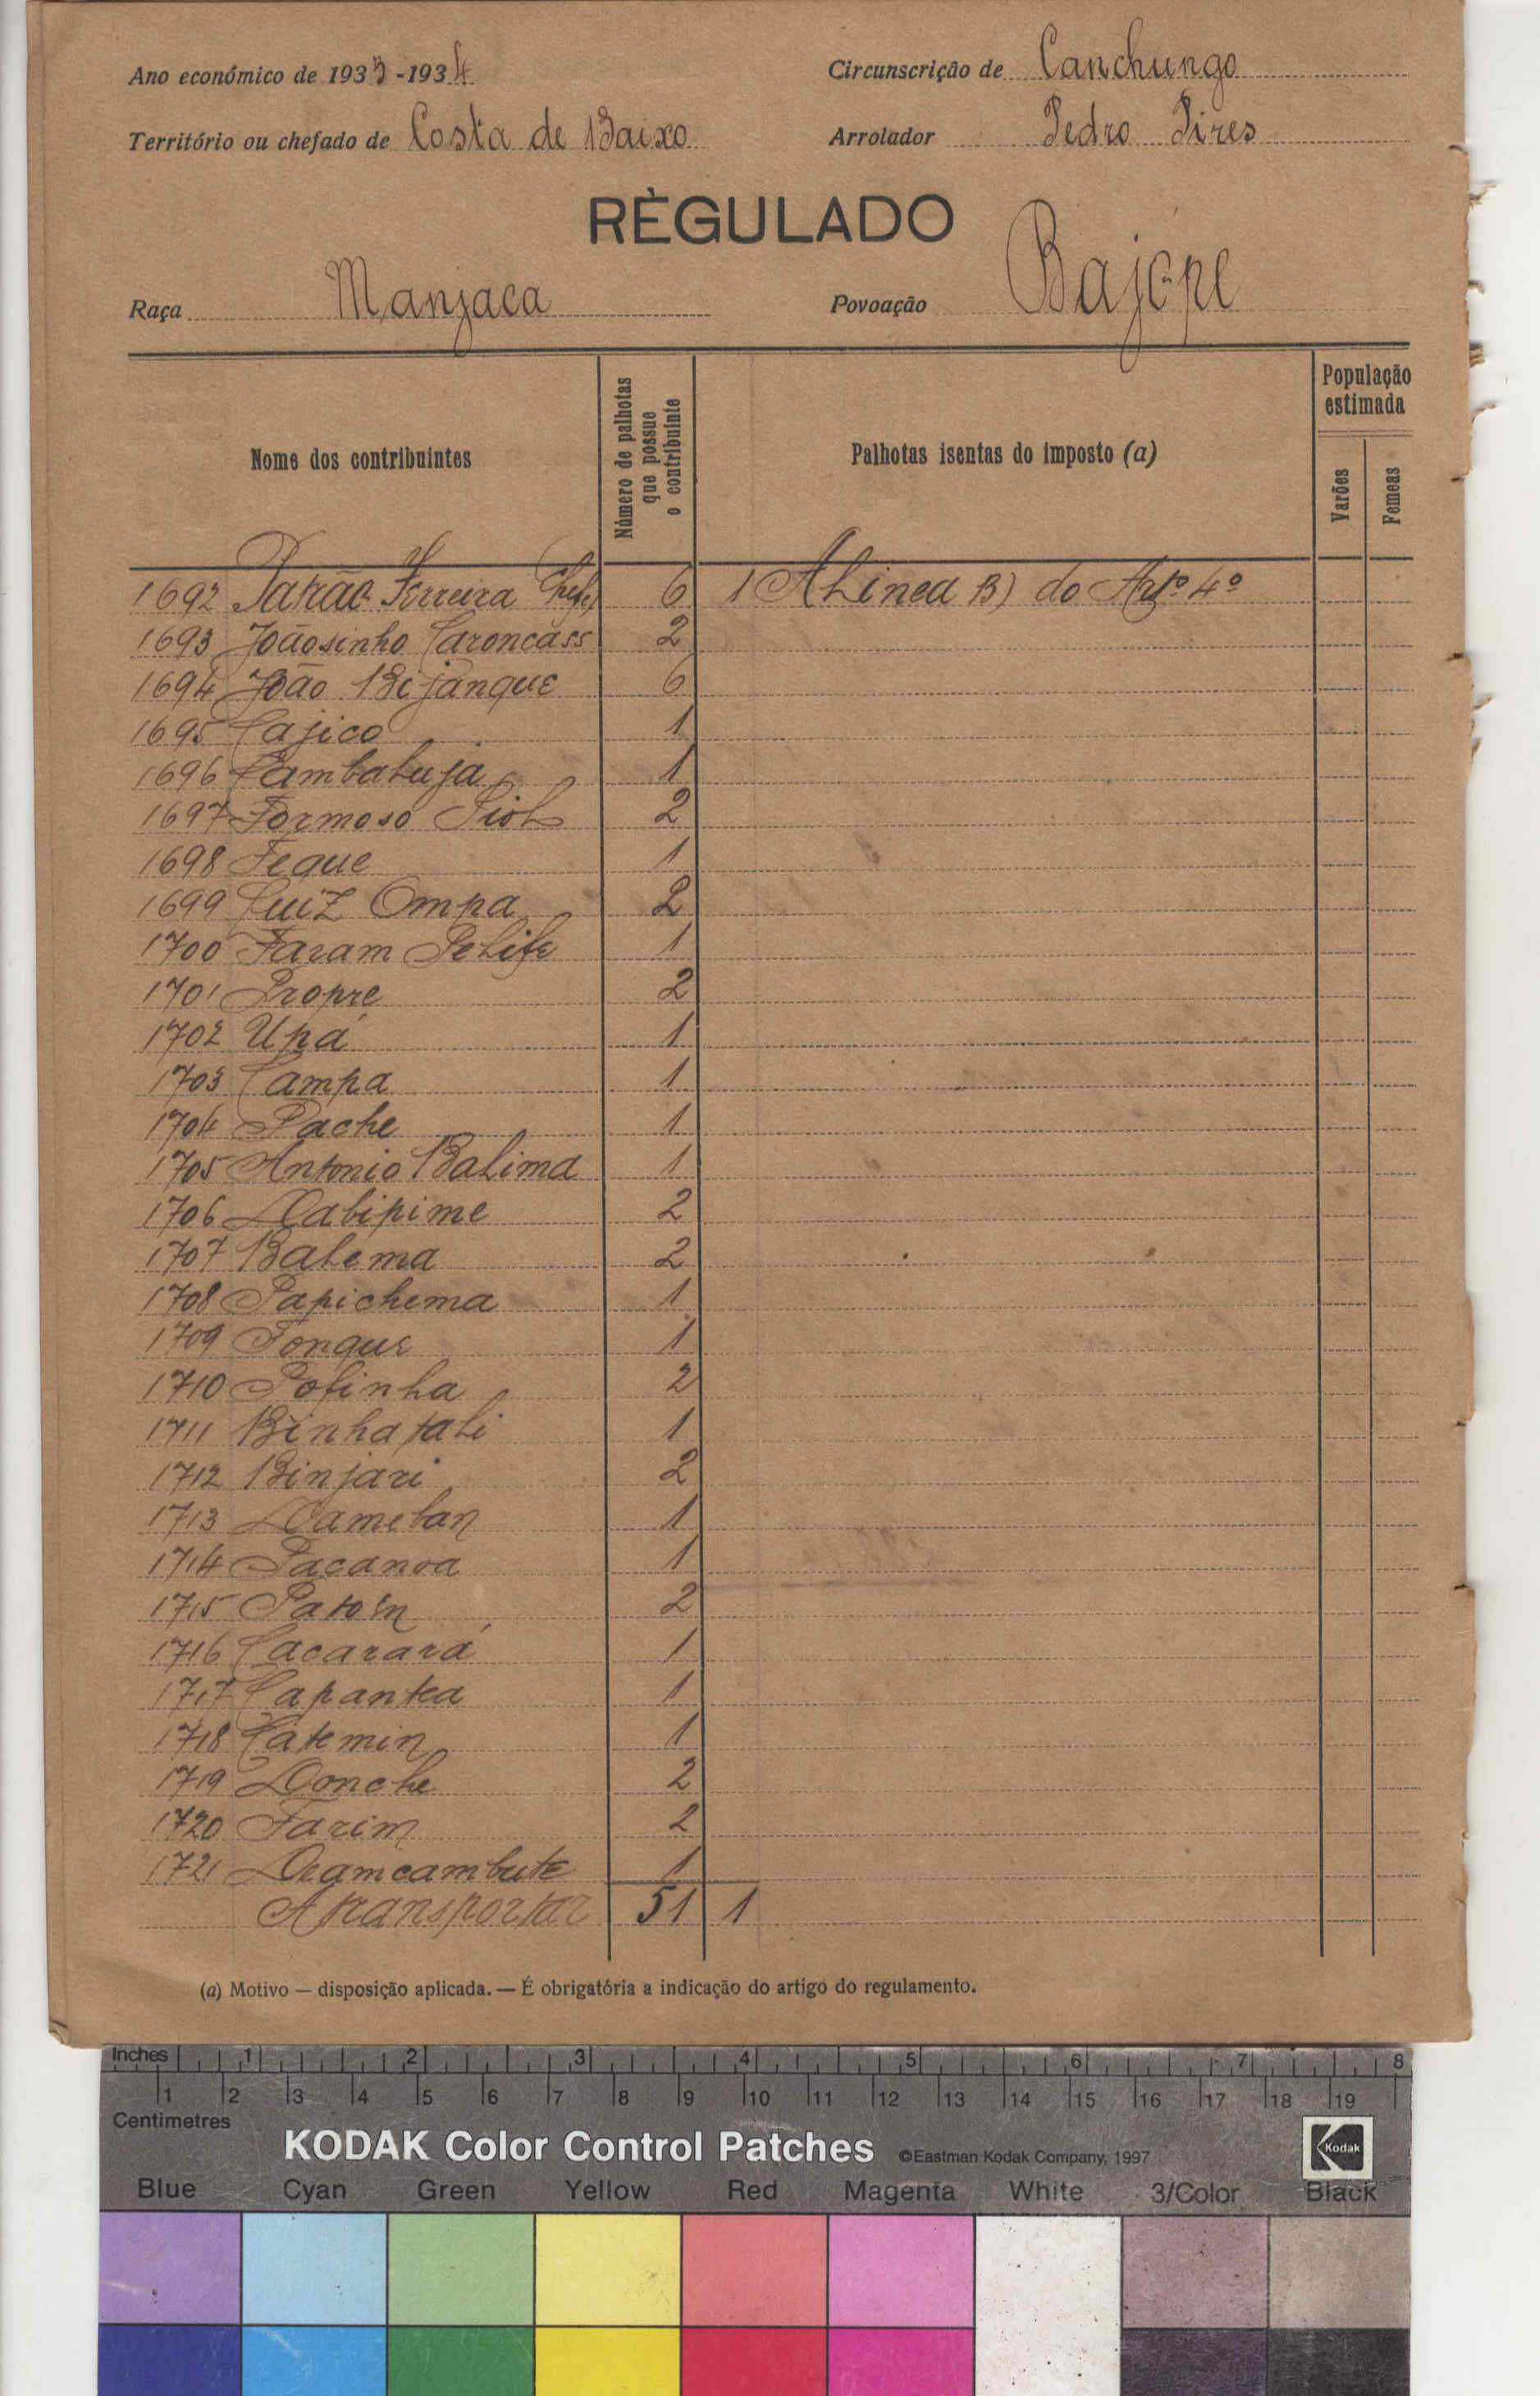 Ano económico de 1933-1934
Circunscrição de Canchungo
Território ou chefado de Costa de Baixo
Arrolador Pedro Pires
RÈGULADO
Raça Manjaca
Povoação Bajope
Nome dos contribuintes
Número de palhotas que possue o contribuinte
Palhotas isentas do imposto (a)
População estimada
Varões
Femeas
1692 Patrão Ferreira Chefe 6 1 Alinea B) do Artº 4º
1693 Joãosinho Caroncass 2
1694 João Bijanque 6
1695 Cajico 1
1696 Cambaluja 1
1697 Formoso Piol 2
1698 Feque 1
1699 Luiz Ompa 2
1700 Faram Pelife 1
1701 Propre 2
1702 Upá 1
1703 Campa 1
1704 Pache 1
1705 Antonio Balima 1
1706 Dabipime 2
1707 Balema 2
1708 Papichema 1
1709 Fonque 1
1710 Pofinha 2
1711 Binhatali 1
1712 Binjari 2
1713 Damelan 1
1714 Pacanoa 1
1715 Patoin 2
1716 Cacarará 1
1717 Capantea 1
1718 Catemin 1
1719 Donche 2
1720 Farim 2
1721 Degmcambute 1
A transportar 51 1
(a) Motivo — disposição aplicada. — É obrigatória a indicação do artigo do regulamento.
Inches 1 2 3 4 5 6 7 8
1 2 3 4 5 6 7 8 9 10 11 12 13 14 15 16 17 18 19
Centimetres
KODAK Color Control Patches ©Eastman Kodak Company, 1997 Kodak
Blue Cyan Green Yellow Red Magenta White 3/Color Black